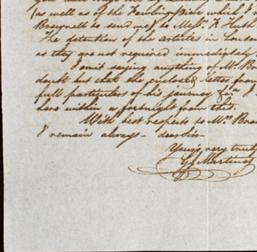 (as well as of the Fowling piece which I
Bracquets to send me) as Messrs
The detention of the articles in London
as they are not required immediately
I omit saying anything of Mr. Br
doubt but that the enclosed letter from
full particulars of his journey
here within a fortnight from this.
With best respects to Mrs
I remain always dear Sir
Yours very truly
Martineau